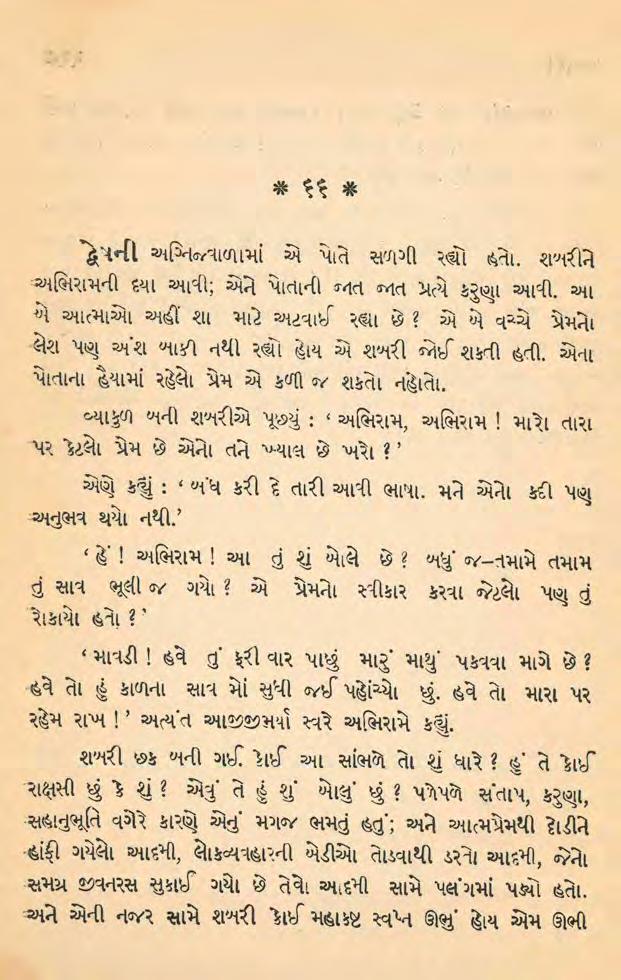 * ૬૬ *
દ્વેષની અગ્નિજ્વાળામાં એ પોતે સળગી રહ્યો હતો. શબરીને
અભિરામની દયા આવી; એને પોતાની જાત જાત પ્રત્યે કરુણા આવી. આ
બે આત્માઓ અહીં શા માટે અટવાઈ રહ્યા છે? એ બે વચ્ચે પ્રેમનો
લેશ પણ અંશ બાકી નથી રહ્યો હોય એ શબરી જોઈ શકતી હતી. એના
પોતાના હૈયામાં રહેલો પ્રેમ એ કળી જ શકતો નહોતો.
વ્યાકુળ બની શબરીએ પૂછ્યું : ‘ અભિરામ, અભિરામ ! મારો તારા
પર કેટલો પ્રેમ છે એનો તને ખ્યાલ છે ખરો ? ’
એણે કહ્યું : ‘ બંધ કરી દે તારી આવી ભાષા. મને એનો કદી પણ
અનુભવ થયો નથી.’
‘ હેં ! અભિરામ ! આ તું શું બોલે છે ? બધું જ–તમામે તમામ
તું સાવ ભૂલી જ ગયો ? એ પ્રેમનો સ્વીકાર કરવા જેટલો પણ તું
રોકાયો હતો ? ’
‘ માવડી ! હવે તું ફરી વાર પાછું મારું માથું પકવવા માગે છે ?
હવે તો હું કાળના સાવ મોં સુધી જઈ પહોંચ્યો છું. હવે તો મારા પર
રહેમ રાખ ! ’ અત્યંત આજીજીભર્યા સ્વરે અભિરામે કહ્યું.
શબરી છક બની ગઈ. કોઈ આ સાંભળે તો શું ધારે ? હું તે કોઈ
રાક્ષસી છું કે શું ? એવું તે હું શું બોલું છું ? પળેપળે સંતાપ, કરુણા,
સહાનુભૂતિ વગેરે કારણે એનું મગજ ભમતું હતું; અને આત્મપ્રેમથી દોડીને
હાંફી ગયેલો આદમી, લોકવ્યવહારની બેડીઓ તોડવાથી ડરતો આદમી, જેનો
સમગ્ર જીવનરસ સુકાઈ ગયો છે તેવો આદમી સામે પલંગમાં પડ્યો હતો.
અને એની નજર સામે શબરી કોઈ મહાકષ્ટ સ્વપ્ન ઊભું હોય એમ ઊભી